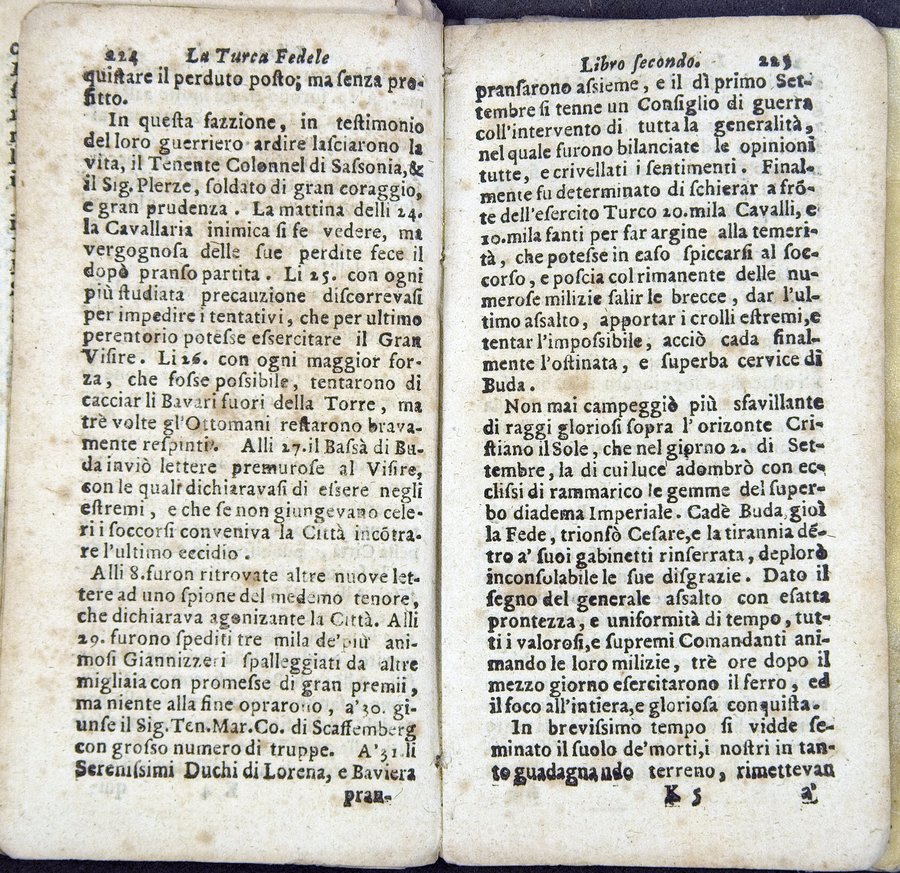 224 La Turca Fedele
quiſtare il perduto poſto; ma ſenza pro-
fitto.
In queſta fazzione, in teſtimonio
del loro guerriero ardire laſciarono la
vita, il Tenente Colonnel di Saſſonia, &
il Sig. Plerze, ſoldato di gran coraggio,
e gran prudenza. La mattina delli 24.
la Cavallaria inimica ſi fe vedere, ma
vergognoſa delle ſue perdite fece il
dopò pranſo partita. Li 25. con ogni
più ſtudiata precauzione diſcorrevaſi
per impedire i tentativi, che per ultimo
perentorio poteſſe eſſercitare il Gran
Viſire. Li 26. con ogni maggior for-
za, che foſſe poſſibile, tentarono di
cacciar li Bavari fuori della Torre, ma
trè volte gl'Ottomani reſtarono brava-
mente reſpinti. Alli 27. il Baſsà di Bu-
da inviò lettere premuroſe al Viſire,
con le quali dichiaravaſi di eſſere negli
eſtremi, e che ſe non giungevano cele-
ri i ſoccorſi conveniva la Città incōtra-
re l'ultimo eccidio.
Alli 8. furon ritrovate altre nuove let-
tere ad uno ſpione del medemo tenore,
che dichiarava agonizante la Città. Alli
29. furono ſpediti tre mila de' più ani-
moſi Giannizzeri ſpalleggiati da altre
migliaia con promeſſe di gran premii,
ma niente alla fine oprarono, a' 30. gi-
unſe il Sig. Ten. Mar. Co. di Scaffemberg
con groſſo numero di truppe. A' 31. li
Sereniſſimi Duchi di Lorena, e Baviera
pran-
Libro ſecondo. 225
pranſarono aſſieme, e il dì primo Set-
tembre ſi tenne un Conſiglio di guerra
coll'intervento di tutta la generalità,
nel quale furono bilanciate le opinioni
tutte, e crivellati i ſentimenti. Final-
mente fu determinato di ſchierar a frō-
te dell'eſercito Turco 20. mila Cavalli, e
10. mila fanti per far argine alla temeri-
tà, che poteſſe in caſo ſpiccarſi al ſoc-
corſo, e poſcia col rimanente delle nu-
meroſe milizie ſalir le brecce, dar l'ul-
timo aſſalto, apportar i crolli eſtremi, e
tentar l'impoſſibile, acciò cada final-
mente l'oſtinata, e ſuperba cervice di
Buda.
Non mai campeggiò più sfavillante
di raggi glorioſi ſopra l'orizonte Cri-
ſtiano il Sole, che nel giorno 2. di Set-
tembre, la di cui luce adombrò con ec-
cliſſi di rammarico le gemme del ſuper-
bo diadema Imperiale. Cadè Buda, gioì
la Fede, trionfò Ceſare, e la tirannia dē-
tro a' ſuoi gabinetti rinſerrata, deplorò
inconſolabile le ſue diſgrazie. Dato il
ſegno del generale aſſalto con eſatta
prontezza, e uniformità di tempo, tut-
ti i valoroſi, e ſupremi Comandanti ani-
mando le loro milizie, trè ore dopo il
mezzo giorno eſercitarono il ferro, ed
il foco all'intiera, e glorioſa conquiſta.
In breviſſimo tempo ſi vidde ſe-
minato il ſuolo de' morti, i noſtri in tan-
to guadagnando terreno, rimettevan
K 5 a'